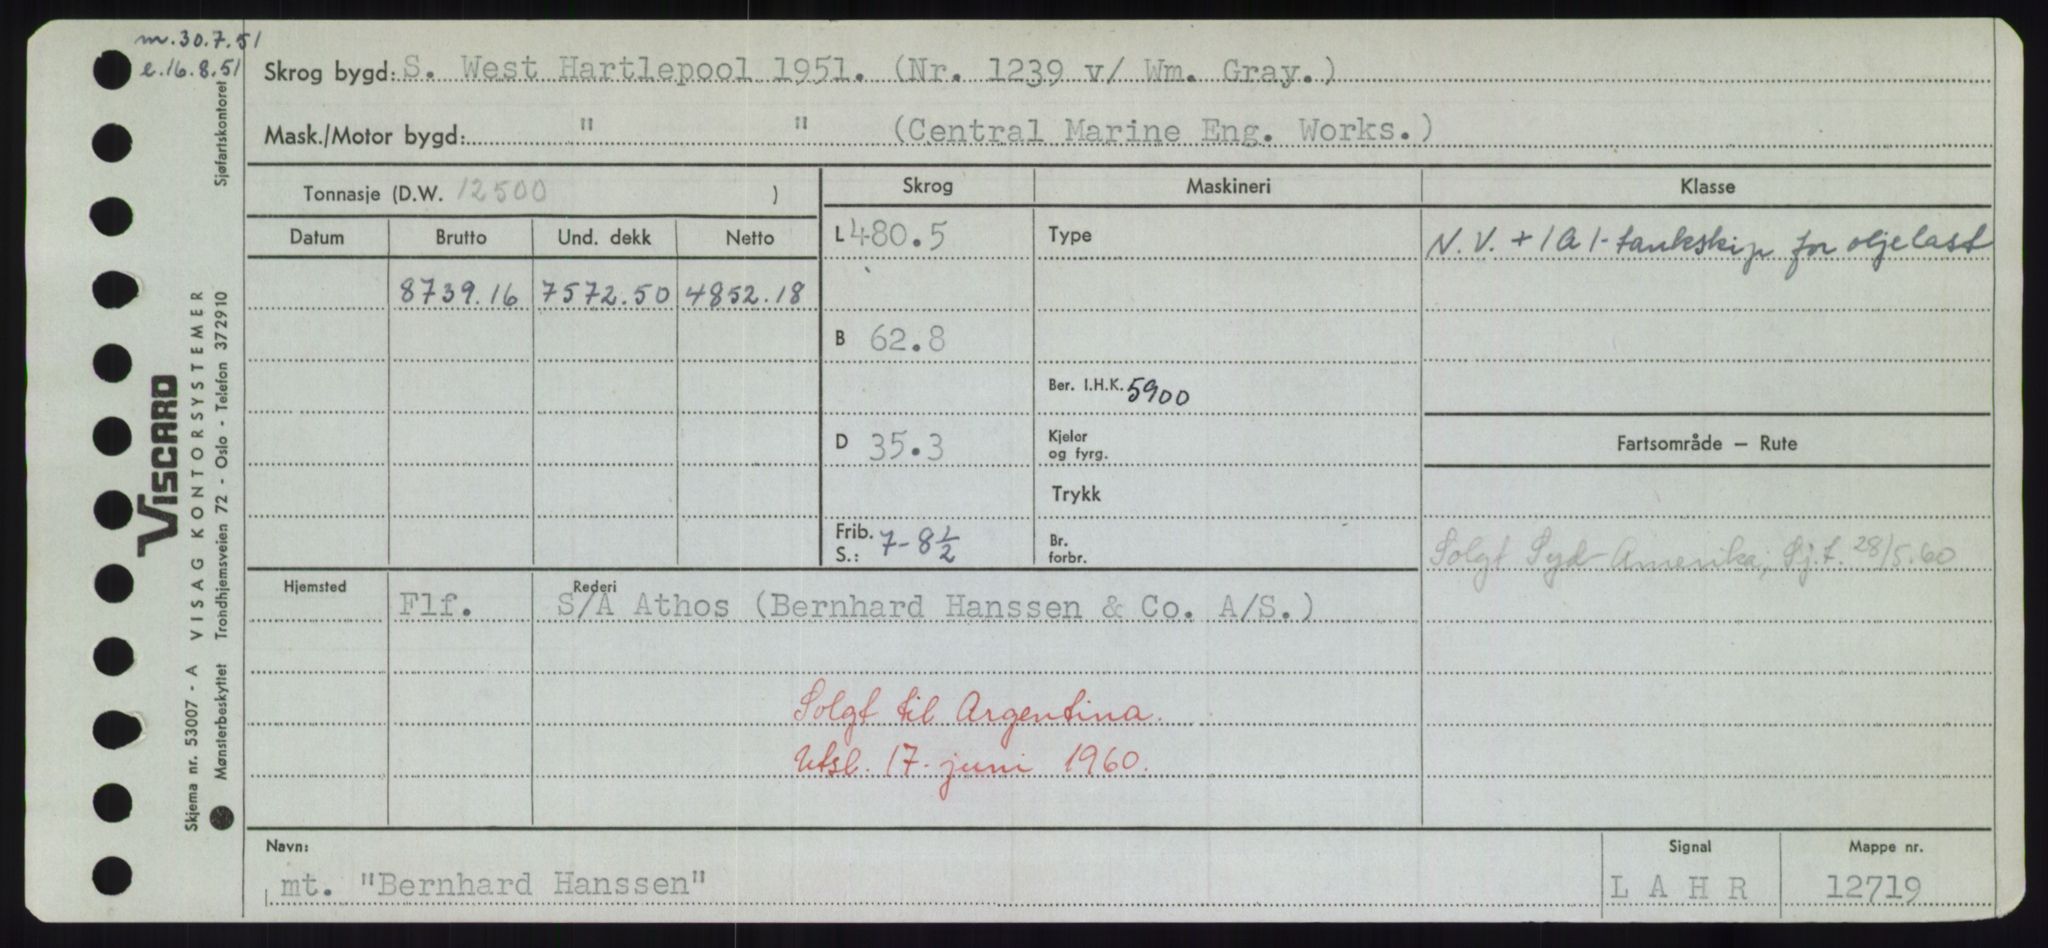 m.30.7.51
e.16.8.51
Skrog bygd: S. West Hartlepool 1951. (Nr. 1239 v/ Wm. Gray.)
Mask./Motor bygd: " " (Central Marine Eng. Works.)
Tonnasje (D.W. 12500 )
Skrog Maskineri Klasse
Datum Brutto Und. dekk Netto
L 480.5 Type N.V. + 1A1-tankskip for oljelast
8739.16 7572.50 4852.18
B 62.8
Ber. I.H.K. 5900
D 35.3 Kjeler
og fyrg.
Fartsområde — Rute
Trykk
Frib.
S.: 7-8½ Br.
forbr.
Solgt Syd-Amerika, Sj.t. 28/5.60
Hjemsted Rederi
Flf. S/A Athos (Bernhard Hanssen & Co. A/S.)
Solgt til Argentina.
Utsl. 17. juni 1960.
Navn: Signal Mappe nr.
mt. "Bernhard Hanssen" L A H R 12719
Skjema nr. 53007 - A VISAG KONTORSYSTEMER
Mønsterbeskyttet Trondhjemsveien 72 - Oslo - Telefon 372910 Sjøfartskontoret
VISCARD